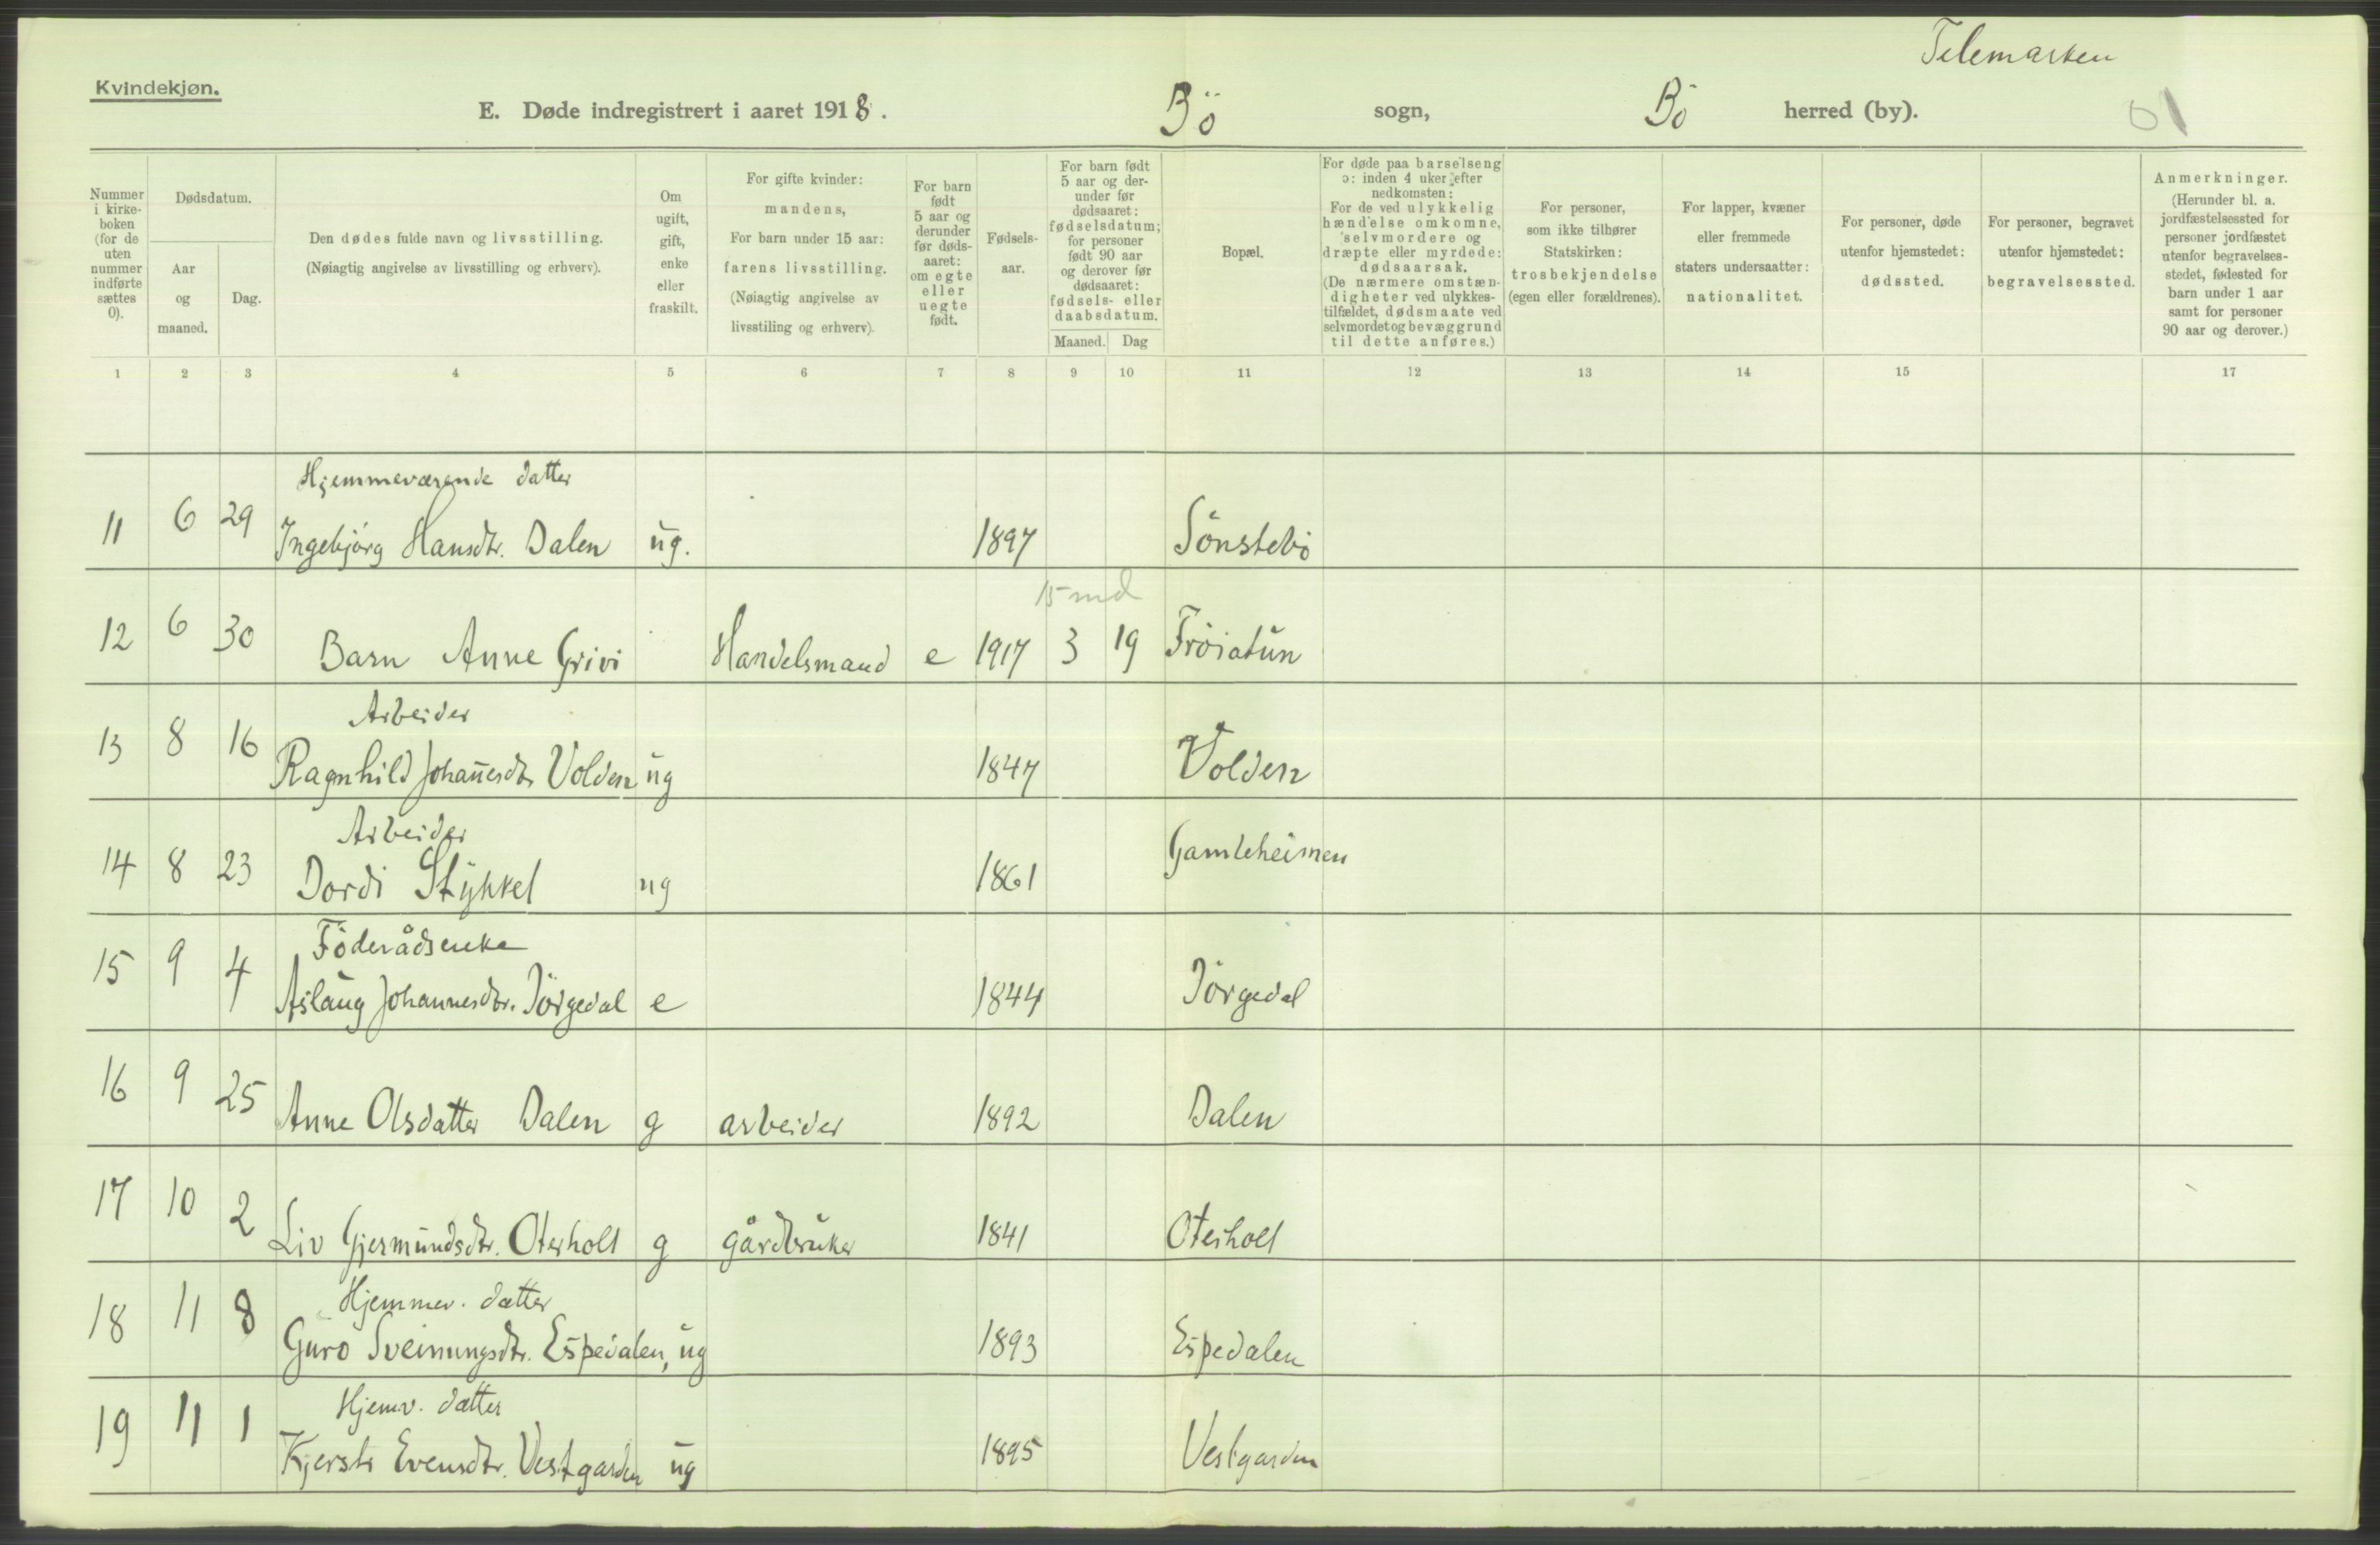 Telemarken
Kvindekjøn.
E. Døde indregistrert i aaret 1918. Bö sogn, Bö herred (by).
01
Nummer i kirke-boken (for de uten nummer indførte sættes 0).
Dødsdatum.
Aar og maaned.
Dag.
Den dødes fulde navn og livsstilling.
(Nøiagtig angivelse av livsstilling og erhverv).
Om ugift, gift, enke eller fraskilt.
For gifte kvinder:
mandens,
For barn under 15 aar:
farens livsstilling.
(Nøiagtig angivelse av
livsstiling og erhverv).
For barn født 5 aar og derunder før døds-aaret: om egte eller uegte født.
Fødsels-aar.
For barn født 5 aar og der-under før dødsaaret: fødselsdatum; for personer født 90 aar og derover før dødsaaret: fødsels- eller daabsdatum.
Maaned. Dag
Bopæl.
For døde paa barselseng ɔ: inden 4 uker efter nedkomsten: For de ved ulykkelig hændelse omkomne, selvmordere og dræpte eller myrdede: dødsaarsak. (De nærmere omstæn-digheter ved ulykkes-tilfældet, dødsmaate ved selvmordet og bevæggrund til dette anføres.)
For personer, som ikke tilhører Statskirken: trosbekjendelse (egen eller forældrenes).
For lapper, kvæner eller fremmede staters undersaatter: nationalitet.
For personer, døde utenfor hjemstedet: dødssted.
For personer, begravet utenfor hjemstedet: begravelsessted.
Anmerkninger.
(Herunder bl. a. jordfæstelsessted for personer jordfæstet utenfor begravelses-stedet, fødested for barn under 1 aar samt for personer 90 aar og derover.)
1 2 3 4 5 6 7 8 9 10 11 12 13 14 15 17
Hjemmeværende datter
11 6 29 Ingebjörg Hansdtr. Dalen ug. 1897 Sönstebö
15 md
12 6 30 Barn Anne Grivi Handelsmand e 1917 3 19 Fröiatun
Arbeider
13 8 16 Ragnhild Johañesdtr Volden ug 1847 Volden
Arbeider
14 8 23 Dordi Stykkel ug 1861 Gamleheimen
Föderådsenke
15 9 4 Aslaug Johannesdtr. Jörgedal e 1844 Jörgedal
16 9 25 Anne Olsdatter Dalen g arbeider 1892 Dalen
17 10 2 Liv Gjermundsdtr. Oterholt g gårdbruker 1841 Oterholt
Hjemmev. datter
18 11 8 Guro Sveinungsdtr. Espedalen, ug 1893 Espedalen
Hjemv. datter
19 11 1 Kjersti Evensdtr. Vestgarden ug 1895 Vestgarden